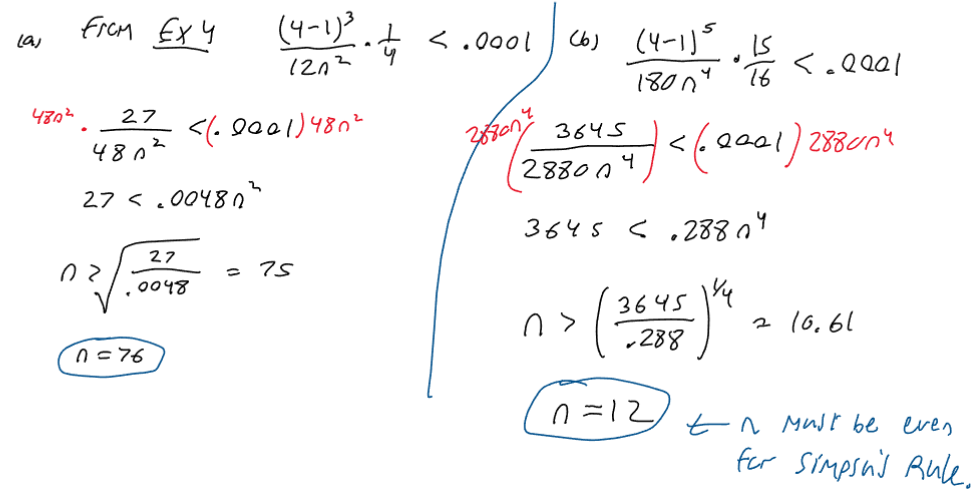 (a) From Ex 4 (4-1)³/12n² · 1/4 < .0001
48n² · 27/48n² < (.0001) 48n²
27 < .0048n²
n > √(27/.0048) = 75
n = 76
(b) (4-1)⁵/180n⁴ · 15/16 < .0001
2880n⁴ (3645/2880n⁴) < (.0001) 2880n⁴
3645 < .288n⁴
n > (3645/.288)^(1/4) = 10.61
n = 12 ← n must be even
for Simpson's Rule.